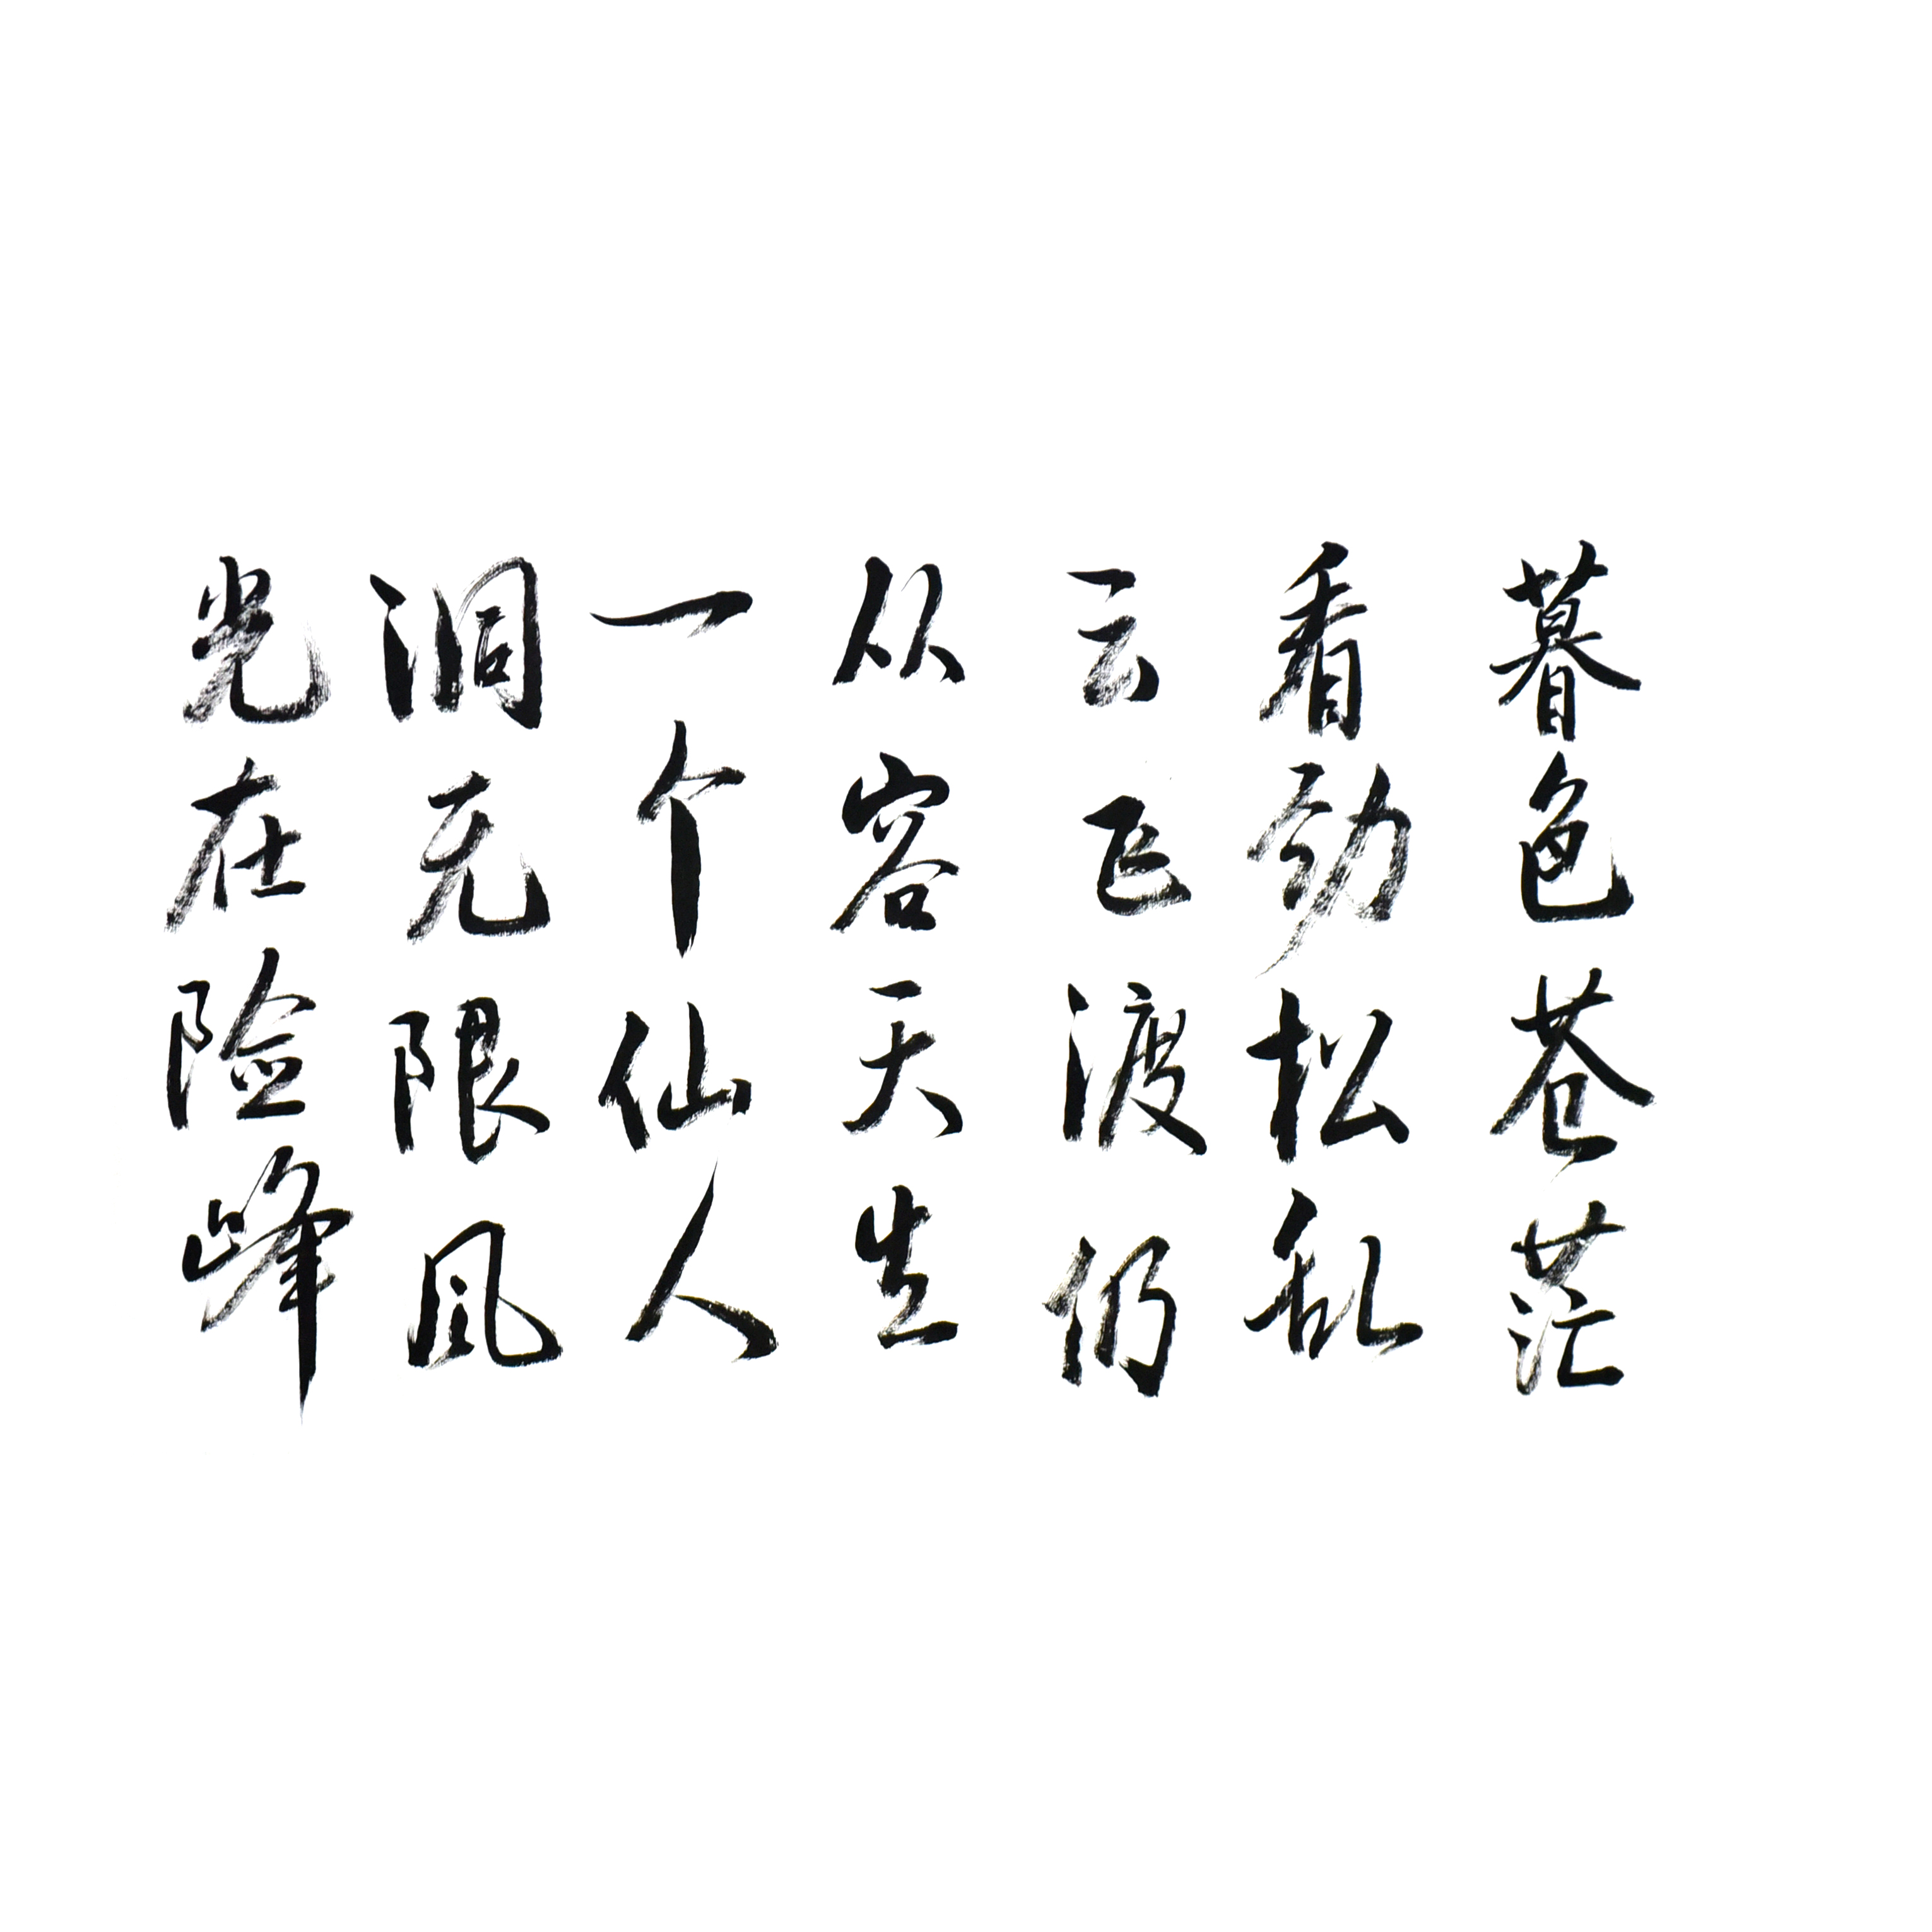 暮色苍茫
看劲松乱
云飞渡仍
从容天生
一个仙人
洞无限风
光在险峰